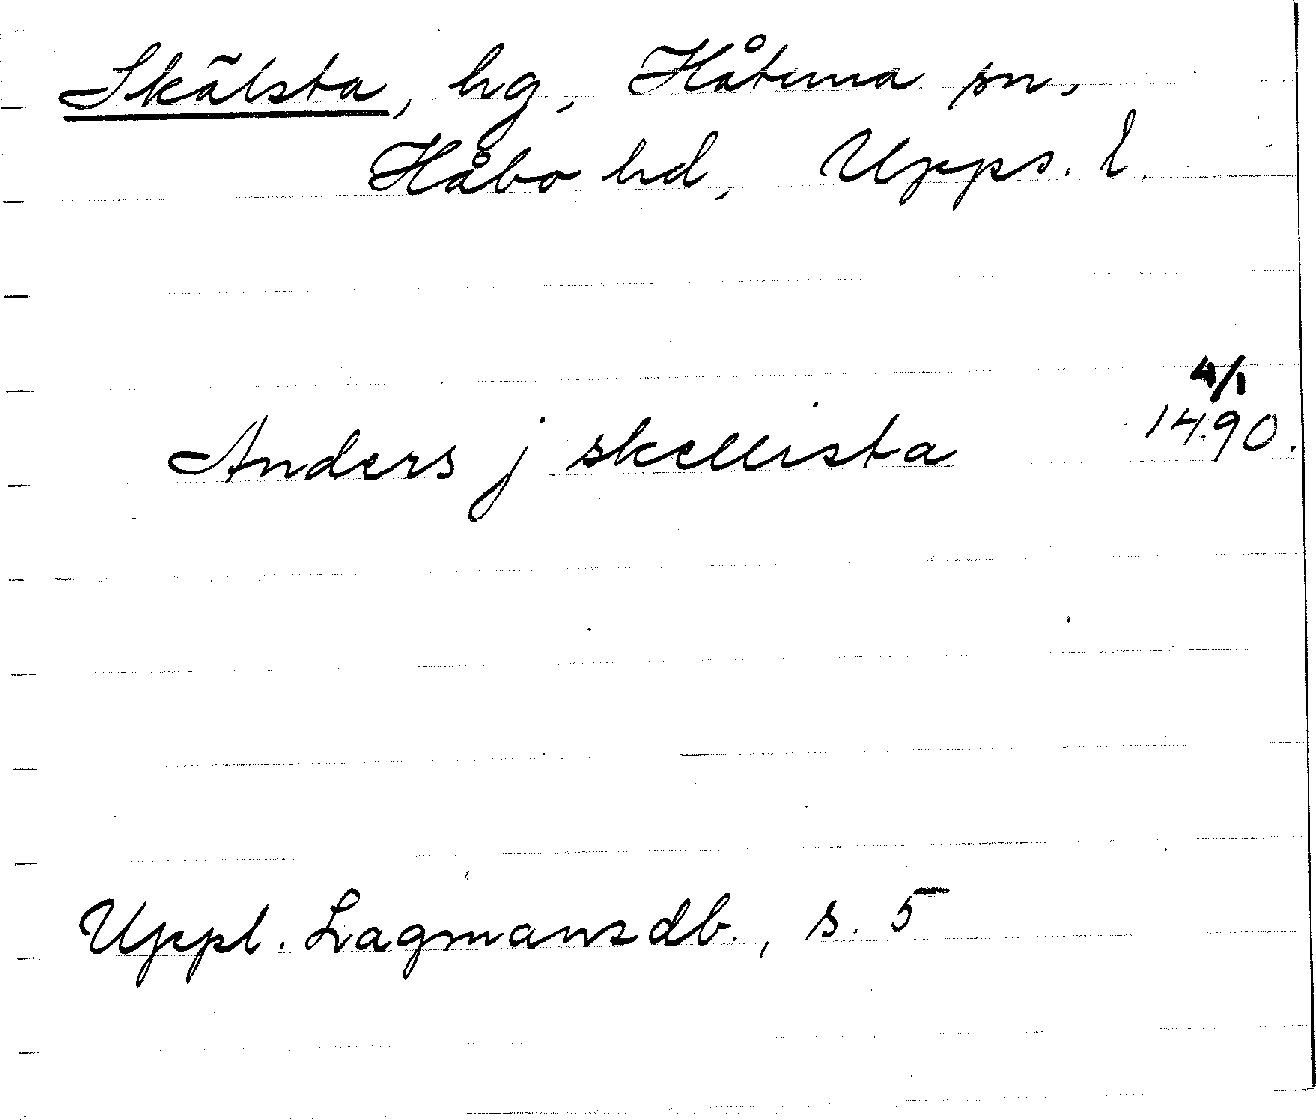 Skälsta, hg, Håtuna sn,
Håbo hd, Upps. l.
4/1
Anders j skellista 1490.
Uppl. Lagmansdb., s. 5